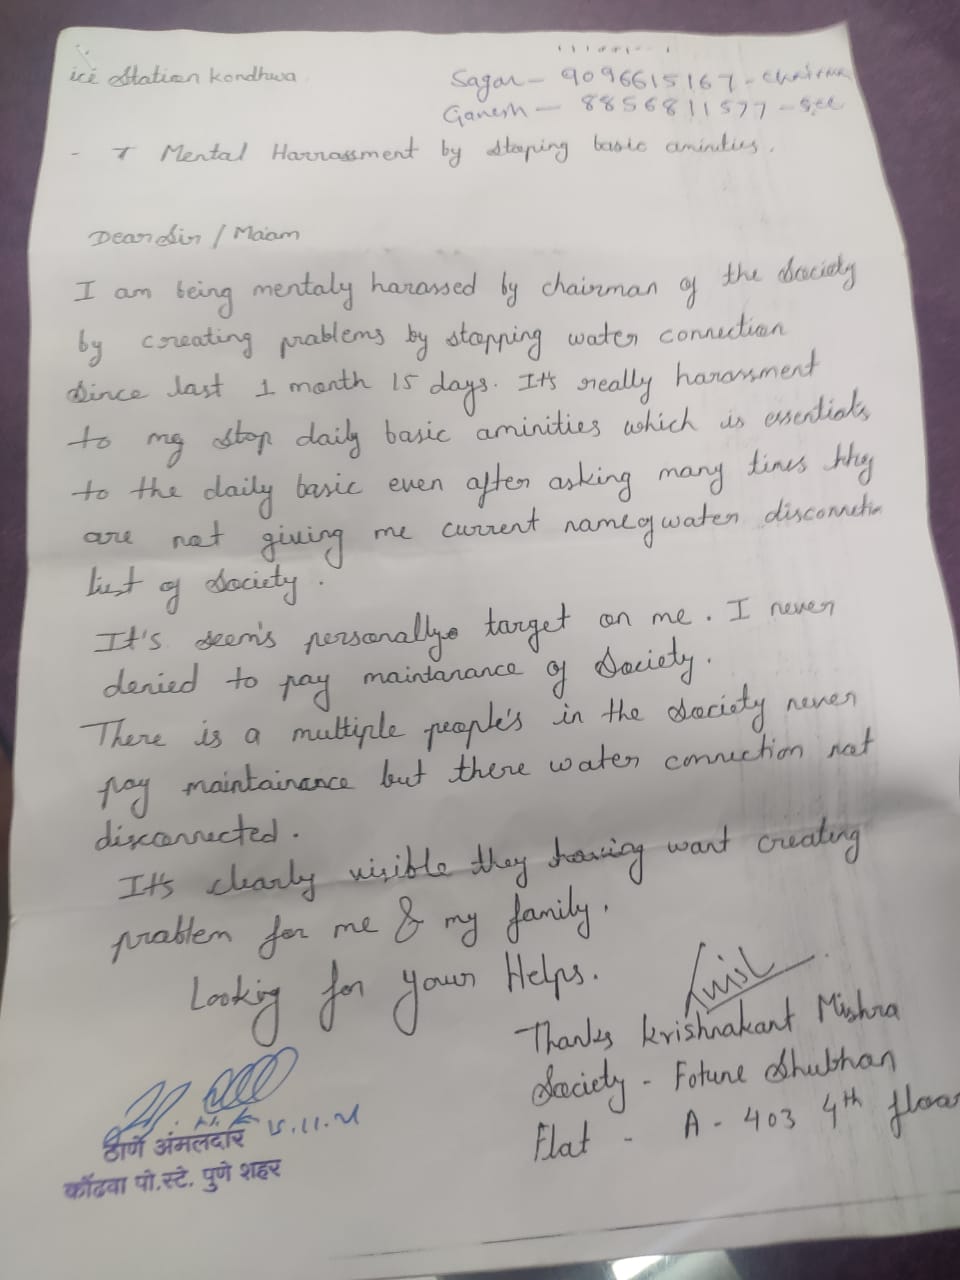 ice Station Kondhwa
Sagar - 9096615167 - Chairman
Ganesh - 8856811577 - Sec
Mental Harrassment by stoping basic aminities.
Dear Sir / Ma'am
I am being mentaly harassed by chairman of the Society
by creating problems by stopping water connection
Since last 1 month 15 days. It's really harassment
to mg stop daily basic aminities which is essentials
to the daily basic even after asking many times they
are not giving me current name of water disconnection
list of Society.
It's seem's personally target on me. I never
denied to pay maintanance of Society.
There is a multiple people's in the Society never
pay maintainance but there water connection not
disconnected.
It's clearly visible they having want creating
problem for me & my family.
Looking for your Helps.
Thanks Krishnakant Mishra
Society - Fotune Shubhan
Flat - A - 403 4th floor
15.11.21
ठाणे अंमलदार
कोंढवा पो.स्टे. पुणे शहर